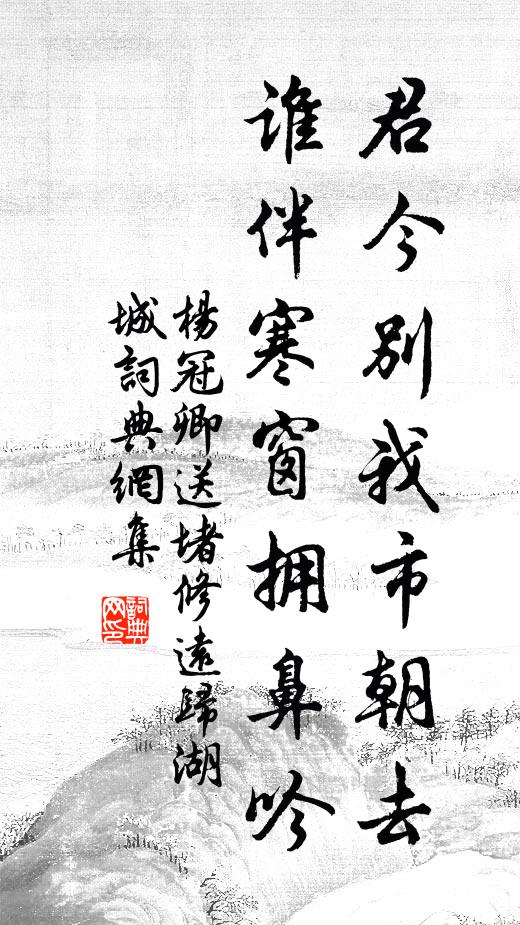 君今別我市朝去
誰伴寒窗拥鼻吟
楊冠卿送堵修遠歸湖
城詞典網集
詞典
网印